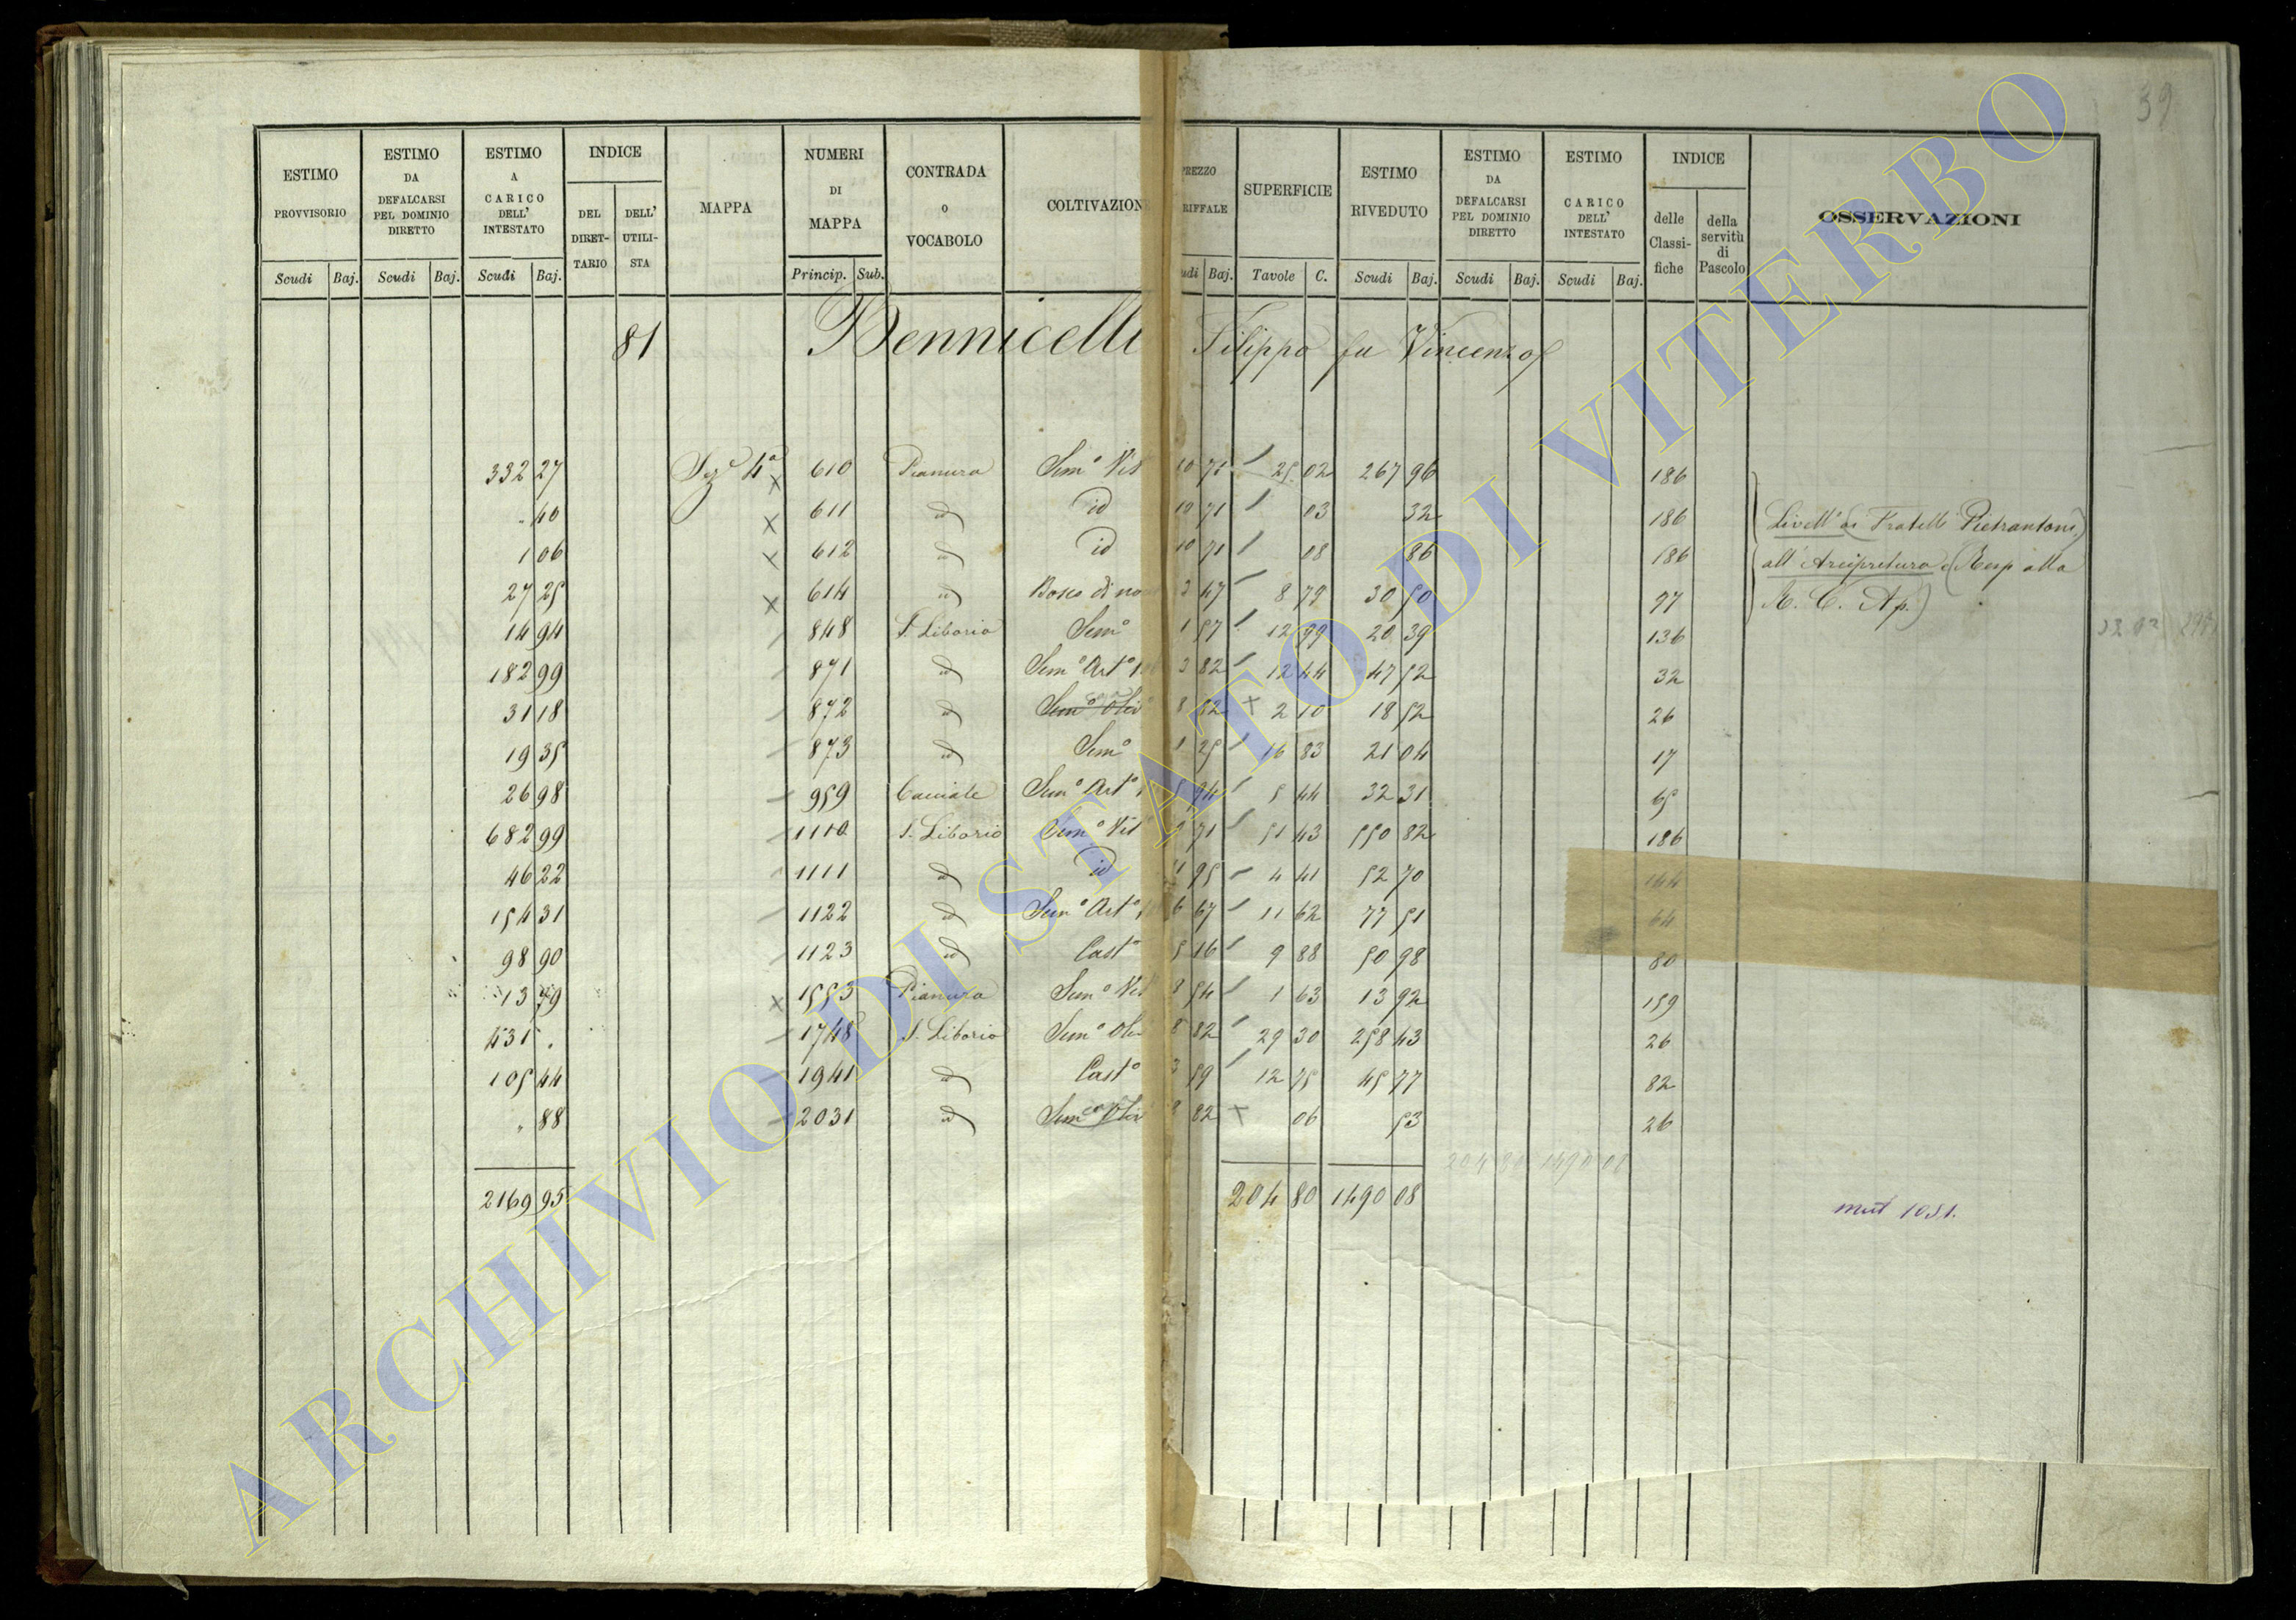 39
ESTIMO PROVVISORIO | ESTIMO DA DEFALCARSI PEL DOMINIO DIRETTO | ESTIMO A CARICO DELL' INTESTATO | INDICE | MAPPA | NUMERI DI MAPPA | CONTRADA o VOCABOLO | COLTIVAZION | PREZZO RIFFALE | SUPERFICIE | ESTIMO RIVEDUTO | ESTIMO DA DEFALCARSI PEL DOMINIO DIRETTO | ESTIMO CARICO DELL' INTESTATO | INDICE | OSSERVAZIONI
DEL DIRET- TARIO | DELL' UTILI- STA | delle Classi- fiche | della servitù di Pascolo
Scudi Baj. | Scudi Baj. | Scudi Baj. | Princip. Sub. | udi Baj. | Tavole C. | Scudi Baj. | Scudi Baj. | Scudi Baj.
81 Bennicelli Filippo fu Vincenzo
332 27 | Sez.e 4a x | 610 | Pianura | Sem.o Vit | 10 71 | 25 02 | 267 96 | 186
" 40 | x | 611 | id | id | 10 71 | 03 | 32 | 186 | Livell. di (Fratelli Pietrantoni)
1 06 | x | 612 | id | id | 10 71 | 08 | 86 | 186 | all' Arcipretura di (Resp alla
27 25 | x | 614 | id | Bosco di no | 3 47 | 8 79 | 30 50 | 97 | R. C. Ap.)
14 94 | 848 | S. Liborio | Sem.o | 1 57 | 12 99 | 20 39 | 136
182 99 | 871 | id | Sem.o Art.o | 3 82 | 12 44 | 47 52 | 32
31 18 | 872 | id | Sem.o Oliv | 8 82 | x 2 10 | 18 52 | 26
19 35 | 873 | id | Sem.o | 1 25 | 16 83 | 21 04 | 17
26 98 | 959 | Cacciate | Sem.o Art.o | 5 94 | 5 44 | 32 31 | 65
682 99 | 1110 | S. Liborio | Sem.o Vit | 71 | 51 43 | 550 82 | 186
46 22 | 1111 | id | id | 11 95 | 4 41 | 52 70 | 144
154 31 | 1122 | id | Sem.o Art.o | 6 67 | 11 62 | 77 51 | 64
98 90 | 1123 | id | Cast.o | 5 16 | 9 88 | 50 98 | 80
13 79 | x | 1553 | Pianura | Sem.o Vit | 8 54 | 1 63 | 13 92 | 159
431 " | 1748 | S. Liborio | Sem.o Oliv | 8 82 | 29 30 | 258 43 | 26
105 44 | 1941 | id | Cast.o | 3 59 | 12 75 | 45 77 | 82
" 88 | 2031 | id | Sem.o Oliv | 8 82 | x 06 | 53 | 26
204 80 1490 08
2169 95 | 204 80 | 1490 08
mut 1051.
ARCHIVIO DI STATO DI VITERBO